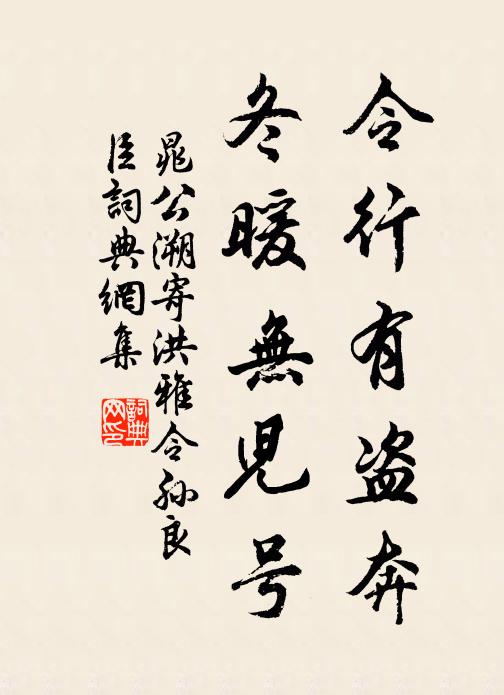 令行有盗奔
冬暖無児号
晁公溯寄洪雅令孫良
臣詞典網集
詞典
网印